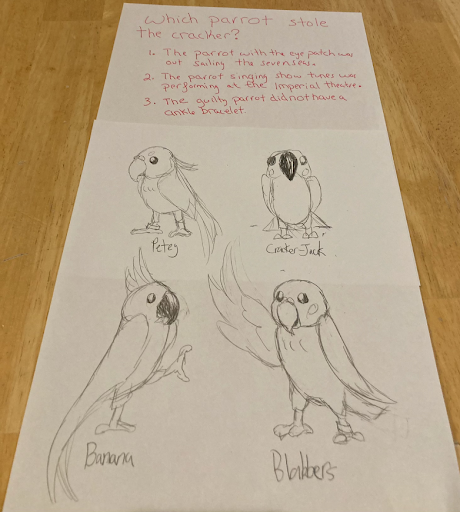 Which parrot stole
the cracker?
1. The parrot with the eye patch was
out sailing the seven seas.
2. The parrot singing show tunes was
performing at the Imperial theatre.
3. The guilty parrot did not have a
ankle bracelet.
Petey
Cracker-Jack
Banana
Blabbers